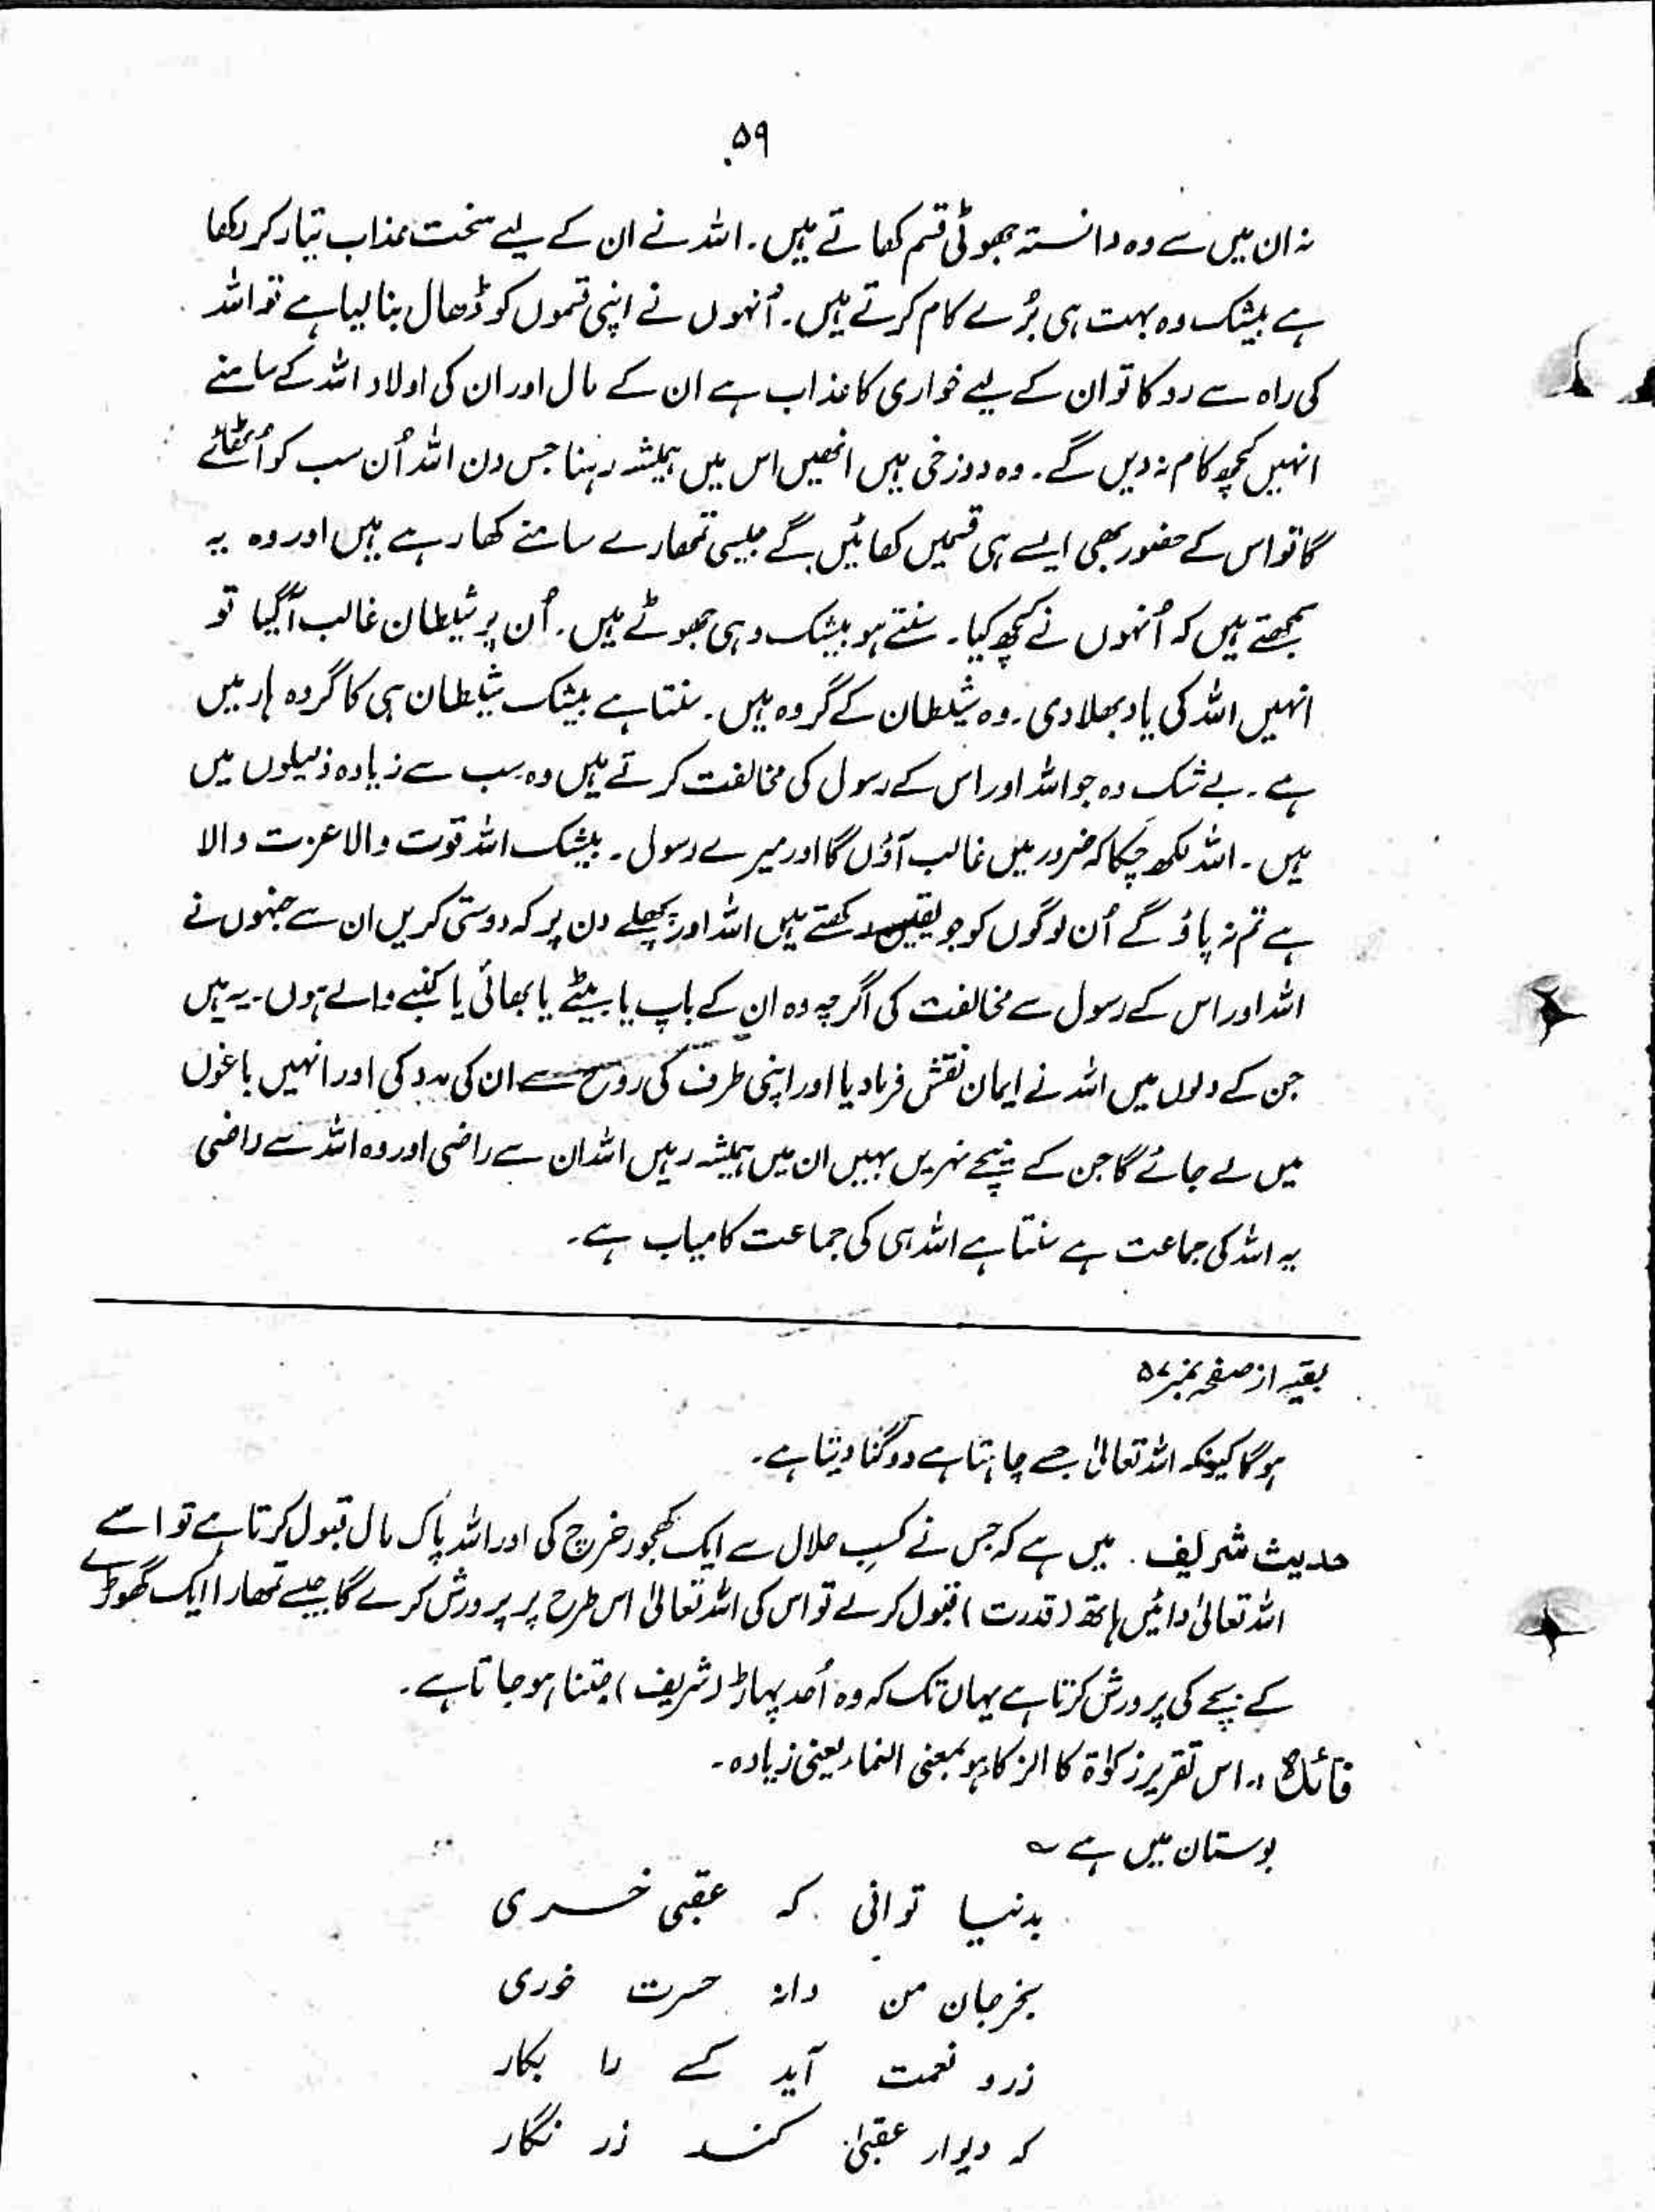 ۵۹
نہ ان میں سے وہ دانستہ جھوٹی قسم کھاتے ہیں۔ اللہ نے ان کے لیے سخت عذاب تیار کر رکھا
ہے بیشک وہ بہت ہی بُرے کام کرتے ہیں۔ اُنہوں نے اپنی قسموں کو ڈھال بنا لیا ہے تو اللہ
کی راہ سے روکا تو ان کے لیے خواری کا عذاب ہے ان کے مال اور ان کی اولاد اللہ کے سامنے
انہیں کچھ کام نہ دیں گے۔ وہ دوزخی ہیں انھیں اس میں ہمیشہ رہنا جس دن اللہ اُن سب کو اُٹھائے
گا تو اس کے حضور بھی ایسے ہی قسمیں کھائیں گے جیسی تمھارے سامنے کھا رہے ہیں اور وہ یہ
سمجھتے ہیں کہ اُنہوں نے کچھ کیا۔ سنتے ہو بیشک وہی جھوٹے ہیں۔ اُن پر شیطان غالب آگیا تو
انہیں اللہ کی یاد بھلا دی۔ وہ شیطان کے گروہ ہیں۔ سنتا ہے بیشک شیطان ہی کا گروہ ہار میں
ہے۔ بے شک وہ جو اللہ اور اس کے رسول کی مخالفت کرتے ہیں وہ سب سے زیادہ ذلیلوں میں
ہیں۔ اللہ لکھ چکا کہ ضرور میں غالب آؤں گا اور میرے رسول۔ بیشک اللہ قوت والا عزت والا
ہے تم نہ پاؤ گے اُن لوگوں کو جو یقین رکھتے ہیں اللہ اور پچھلے دن پر کہ دوستی کریں ان سے جنہوں نے
اللہ اور اس کے رسول سے مخالفت کی اگرچہ وہ ان کے باپ یا بیٹے یا بھائی یا کنبے والے ہوں۔ یہ ہیں
جن کے دلوں میں اللہ نے ایمان نقش فرما دیا اور اپنی طرف کی روح سے ان کی مدد کی اور انہیں باغوں
میں لے جائے گا جن کے نیچے نہریں بہیں ان میں ہمیشہ رہیں اللہ ان سے راضی اور وہ اللہ سے راضی
یہ اللہ کی جماعت ہے سنتا ہے اللہ ہی کی جماعت کامیاب ہے۔
بقیہ از صفحہ نمبر ۵۷
ہوگا کیونکہ اللہ تعالیٰ جسے چاہتا ہے دوگنا دیتا ہے۔
حدیث شریف۔ میں ہے کہ جس نے کسبِ حلال سے ایک کھجور خرچ کی اور اللہ پاک مال قبول کرتا ہے تو اسے
اللہ تعالیٰ دائیں ہاتھ (قدرت) قبول کرلے تو اس کی اللہ تعالیٰ اس طرح پر پرورش کرے گا جیسے تمھارا ایک گھوڑے
کے بچے کی پرورش کرتا ہے یہاں تک کہ وہ اُحد پہاڑ (شریف) جتنا ہو جاتا ہے۔
فائدہ :۔ اس تقریر زکوٰۃ کا الزکاء ہو بمعنی النماء یعنی زیادہ۔
بوستان میں ہے ؎
بدنیا توانی کہ عقبی خری
بخر جان من دانہ حسرت خوری
زر و نعمت آید کسے را بکار
کہ دیوار عقبیٰ کند زر نگار